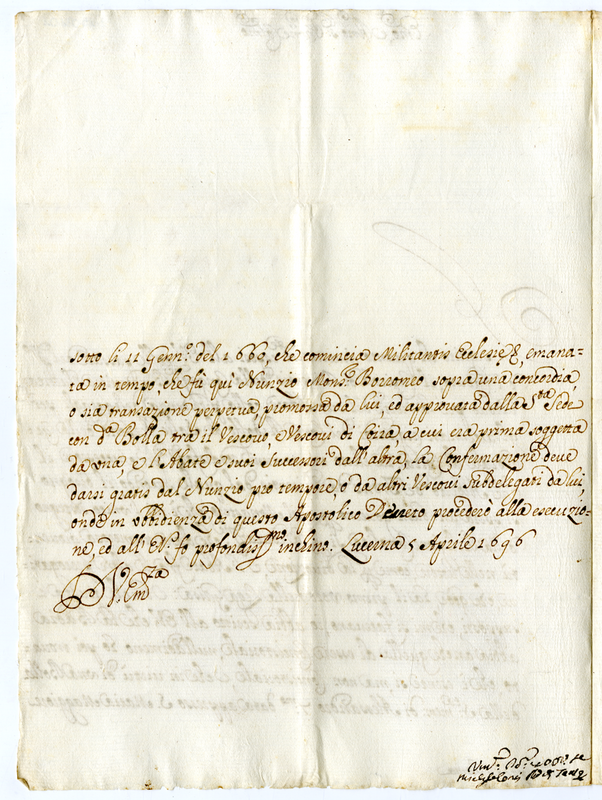 sotto li 11 Genn.º del 1660, che comincia Militantis Ecclesię &, emana=
ta in tempo, che fù quì Nunzio Mons.r Borromeo sopra una concordia,
o sia transazione perpetua promossa da lui, ed approvata dalla S.ta Sede
con d.a Bolla tra il Vescovo, e Vescovi di Coira, a cui era prima soggetta
da una, e l'Abate e suoi Successori dall'altra, la Confermazione deve
darsi gratis dal Nunzio pro tempore, ò da altri Vescovi Subdelegati da lui,
onde in obbidienza di questo Apostolico Decreto procederò alla esecuzio=
ne, ed all' E.V. fo profondiss.mo inchino. Lucerna 5 Aprile 1696
D V.ra Em.za